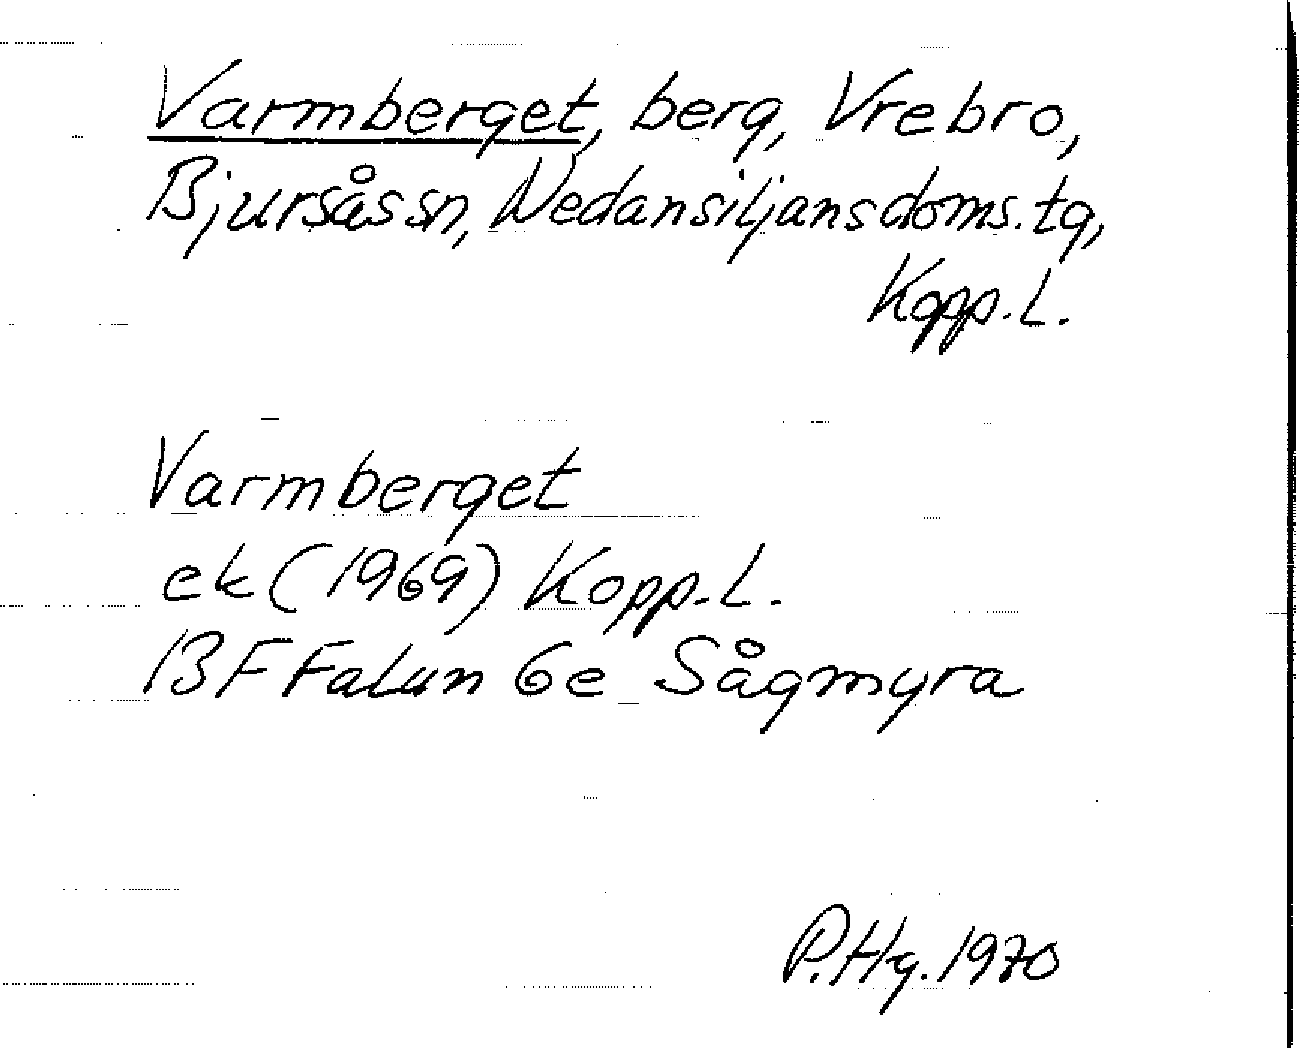 Varmberget, berg, Vrebro,
Bjursås sn, Nedansiljans doms. tg,
Kopp. L.
Varmberget
ek (1969) Kopp. L.
13 F Falun 6e Sågmyra
P. Hg. 1970